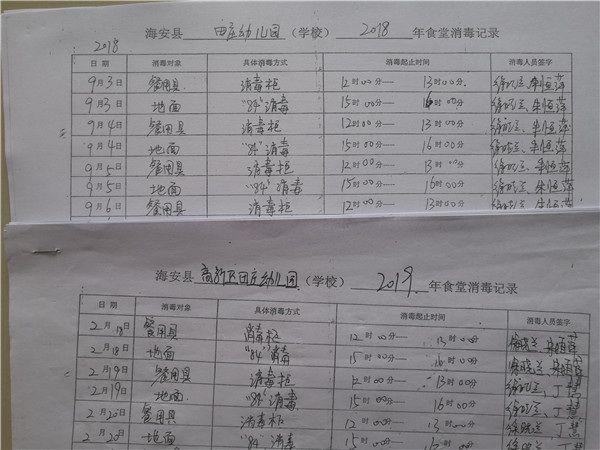 海安县 田庄幼儿园 (学校) 2018 年食堂消毒记录
2018
日期 消毒对象 具体消毒方式 消毒起止时间 消毒人员签字
9月3日 餐用具 消毒柜 12时00分— 13时00分
9月3日 地面 "84"消毒 15时00分— 16时00分
9月4日 餐用具 消毒柜 12时00分— 13时00分
9月4日 地面 "84"消毒 15时00分— 16时00分
9月5日 餐用具 消毒柜 12时00分— 13时00分
9月5日 地面 "84"消毒 15时00分— 16时00分
9月6日 餐用具 消毒柜 12时00分— 13时00分
海安县 高新区田庄幼儿园 (学校) 2019 年食堂消毒记录
日期 消毒对象 具体消毒方式 消毒起止时间 消毒人员签字
2月18日 餐用具 消毒柜 12时00分— 13时00分
2月18日 地面 "84"消毒 15时00分— 16时00分
2月19日 餐用具 消毒柜 12时00分— 13时00分
2月19日 地面 "84"消毒 15时00分— 16时00分 丁慧
2月20日 餐用具 消毒柜 12时00分— 13时00分 丁慧
2月20日 地面 "84"消毒 15时00分— 16时00分 丁慧